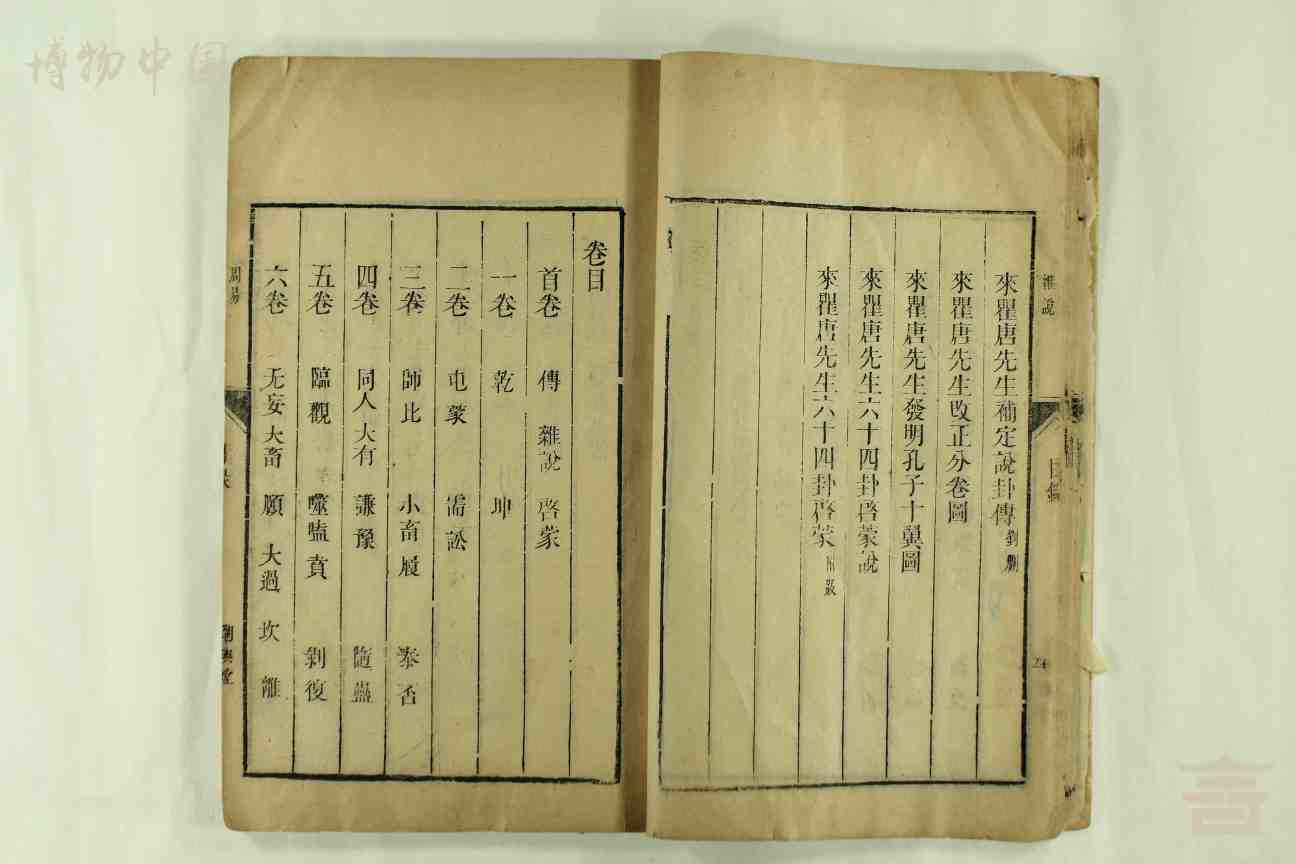 博物中国
雜說
來瞿唐先生補定說卦傳
來瞿唐先生改正分卷圖
來瞿唐先生發明孔子十翼圖
來瞿唐先生六十四卦啓蒙說
來瞿唐先生六十四卦啓蒙
目錄
卷目
首卷 傳 雜說 啓蒙
一卷 乾 坤
二卷 屯蒙 需訟
三卷 師比 小畜履 泰否
四卷 同人大有 謙豫 隨蠱
五卷 臨觀 噬嗑賁 剝復
六卷 无妄大畜 頤 大過 坎 離
周易